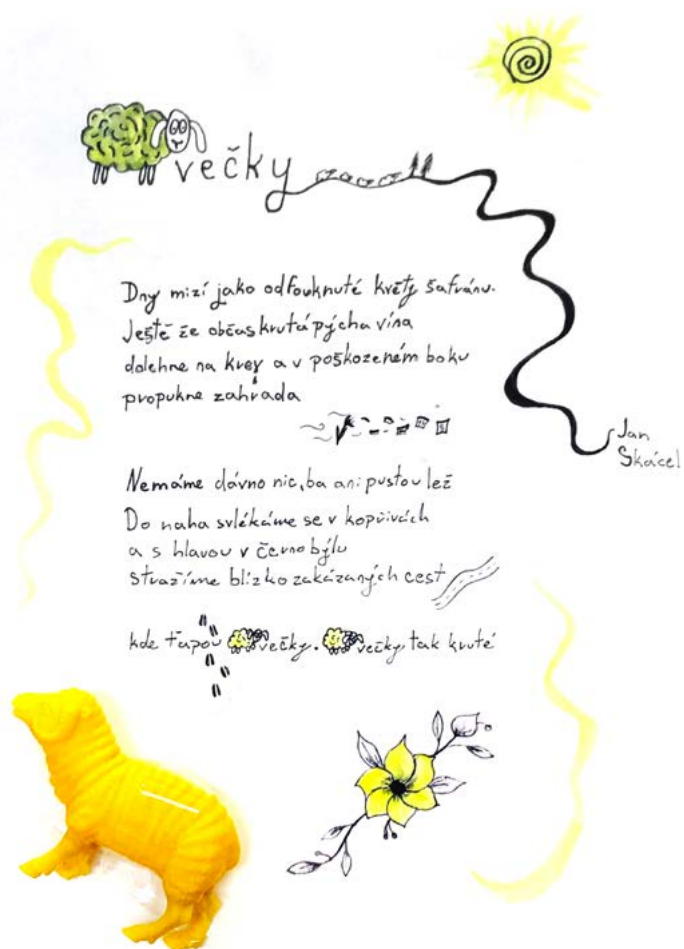 večky
Dny mizí jako odfouknuté květy šafránu.
Ještě že občas krutá pýcha vína
dolehne na krev a v poškozeném boku
propukne zahrada
Jan
Skácel
Nemáme dávno nic, ba ani pustou lež
Do naha svlékáme se v kopřivách
a s hlavou v černobýlu
stražíme blízko zakázaných cest
kde ťapou večky. večky, tak kruté